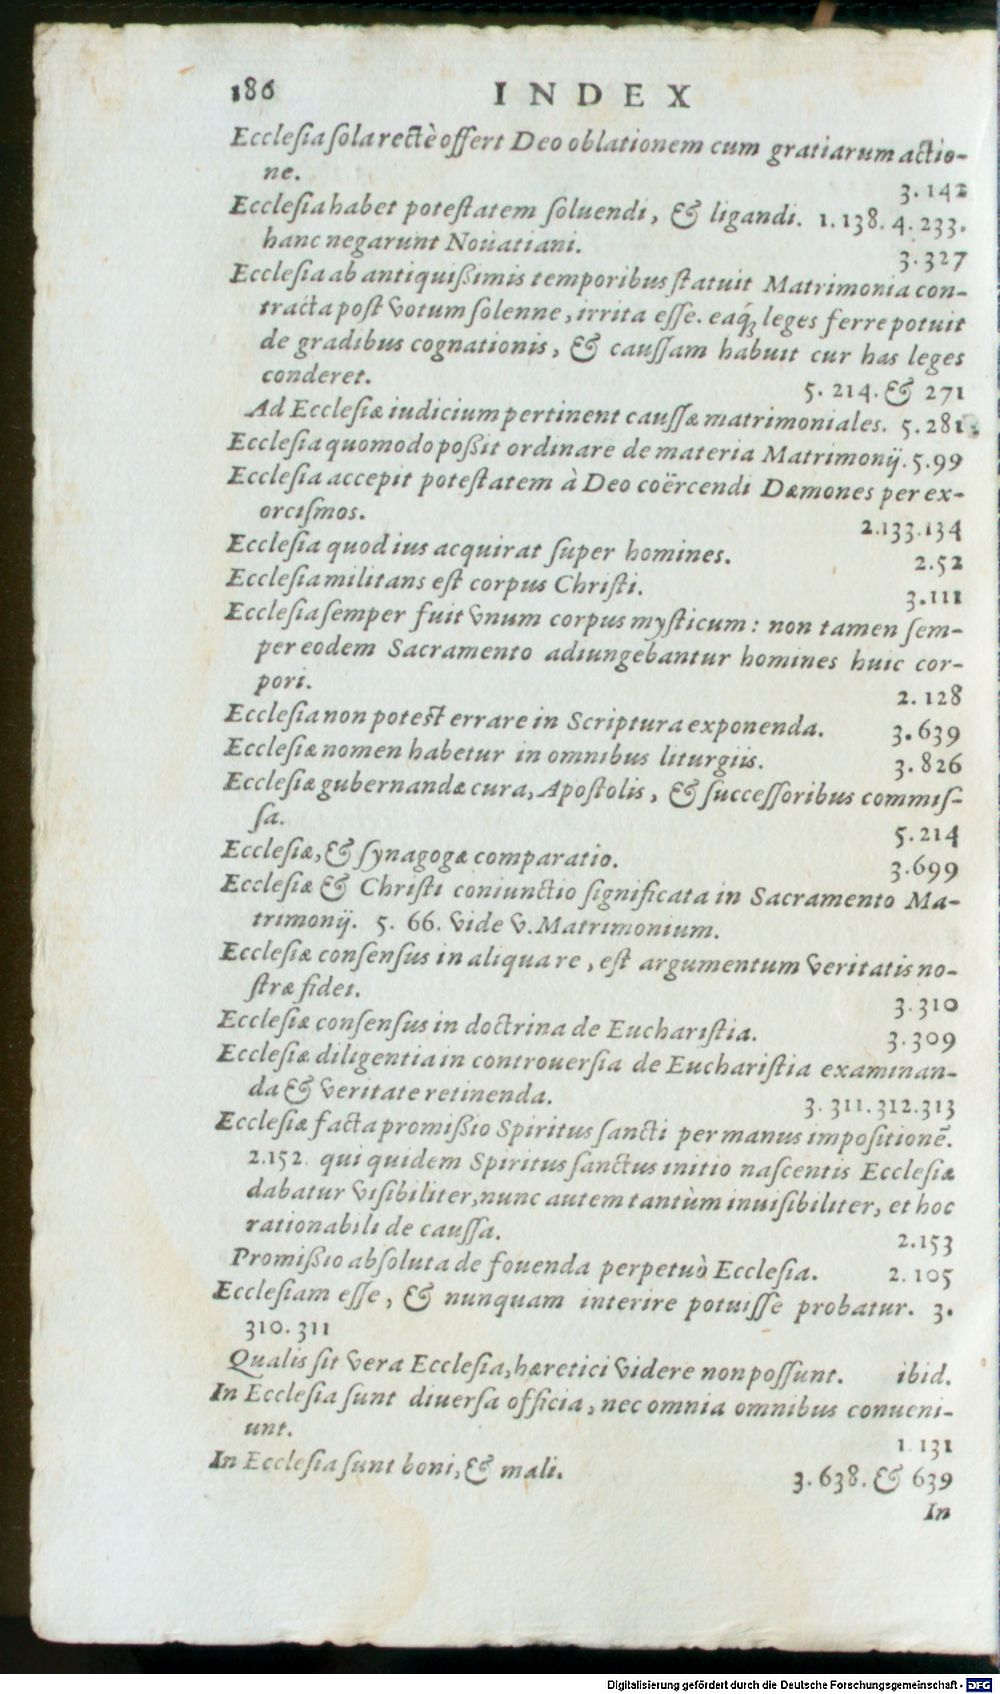 186 INDEX
Ecclesia sola rectè offert Deo oblationem cum gratiarum actio-
ne. 3.142
Ecclesia habet potestatem soluendi, & ligandi. 1.138. 4.233.
hanc negarunt Nouatiani. 3.327
Ecclesia ab antiquißimis temporibus statuit Matrimonia con-
tracta post votum solenne, irrita esse. eaq́; leges ferre potuit
de gradibus cognationis, & caussam habuit cur has leges
conderet. 5. 214. & 271
Ad Ecclesiæ iudicium pertinent caussæ matrimoniales. 5.281.
Ecclesia quomodo poßit ordinare de materia Matrimonij. 5.99
Ecclesia accepit potestatem à Deo coërcendi Dæmones per ex-
orcismos. 2.133.134
Ecclesia quod ius acquirat super homines. 2.52
Ecclesia militans est corpus Christi. 3.111
Ecclesia semper fuit vnum corpus mysticum: non tamen sem-
per eodem Sacramento adiungebantur homines huic cor-
pori. 2.128
Ecclesia non potest errare in Scriptura exponenda. 3.639
Ecclesiæ nomen habetur in omnibus liturgiis. 3.826
Ecclesiæ gubernandæ cura, Apostolis, & successoribus commis-
sa. 5.214
Ecclesiæ, & synagogæ comparatio. 3.699
Ecclesiæ & Christi coniunctio significata in Sacramento Ma-
trimonij. 5. 66. vide v. Matrimonium.
Ecclesiæ consensus in aliqua re, est argumentum veritatis no-
stræ fidei. 3.310
Ecclesiæ consensus in doctrina de Eucharistia. 3.309
Ecclesiæ diligentia in controuersia de Eucharistia examinan-
da & veritate retinenda. 3. 311.312.313
Ecclesiæ facta promißio Spiritus sancti per manus impositionē.
2.152. qui quidem Spiritus sanctus initio nascentis Ecclesiæ
dabatur visibiliter, nunc autem tantùm inuisibiliter, et hoc
rationabili de caussa. 2.153
Promißio absoluta de fouenda perpetuò Ecclesia. 2. 105
Ecclesiam esse, & nunquam interire potuisse probatur. 3.
310.311
Qualis sit vera Ecclesia, hæretici videre non possunt. ibid.
In Ecclesia sunt diuersa officia, nec omnia omnibus conueni-
unt. 1.131
In Ecclesia sunt boni, & mali. 3.638. & 639
In
Digitalisierung gefördert durch die Deutsche Forschungsgemeinschaft - DFG